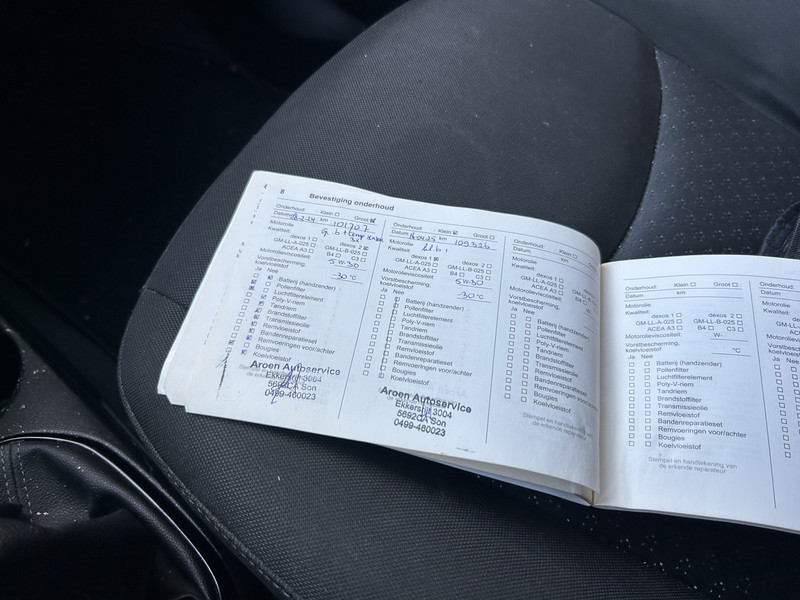 8 Bevestiging onderhoud
Onderhoud: Klein Groot
Datum km 101707
Motorolie
Kwaliteit:
dexos 1 dexos 2
GM-LL-A-025 GM-LL-B-025
ACEA A3 B4 C3
Motorolieviscositeit 5W-30
Vorstbescherming,
koelvloeistof -30 °C
Ja Nee
Batterij (handzender)
Pollenfilter
Luchtfilterelement
Poly-V-riem
Tandriem
Brandstoffilter
Transmissieolie
Remvloeistof
Bandenreparatieset
Remvoeringen voor/achter
Bougies
Koelvloeistof
Aroen Autoservice
Ekkersrijt 3004
5692 Son
0499-460023
Onderhoud: Klein Groot
Datum km 109326
Motorolie
Kwaliteit:
dexos 1 dexos 2
GM-LL-A-025 GM-LL-B-025
ACEA A3 B4 C3
Motorolieviscositeit 5W30
Vorstbescherming,
koelvloeistof -30 °C
Ja Nee
Batterij (handzender)
Pollenfilter
Luchtfilterelement
Poly-V-riem
Tandriem
Brandstoffilter
Transmissieolie
Remvloeistof
Bandenreparatieset
Remvoeringen voor/achter
Bougies
Koelvloeistof
Aroen Autoservice
Ekkersrijt 3004
5692 Son
0499-460023
Onderhoud: Klein
Datum
Motorolie
Kwaliteit:
dexos 1
GM-LL-A-025
ACEA A3
Motorolieviscositeit
Vorstbescherming,
koelvloeistof
Ja Nee
Batterij (handzender)
Pollenfilter
Luchtfilterelement
Poly-V-riem
Tandriem
Brandstoffilter
Transmissieolie
Remvloeistof
Bandenreparatieset
Remvoeringen voor/achter
Bougies
Koelvloeistof
Stempel en handtekening van
de erkende reparateur
Onderhoud: Klein Groot
Datum km
Motorolie
Kwaliteit:
dexos 1 dexos 2
GM-LL-A-025 GM-LL-B-025
ACEA A3 B4 C3
Motorolieviscositeit: W-
Vorstbescherming,
koelvloeistof °C
Ja Nee
Batterij (handzender)
Pollenfilter
Luchtfilterelement
Poly-V-riem
Tandriem
Brandstoffilter
Transmissieolie
Remvloeistof
Bandenreparatieset
Remvoeringen voor/achter
Bougies
Koelvloeistof
Stempel en handtekening van
de erkende reparateur